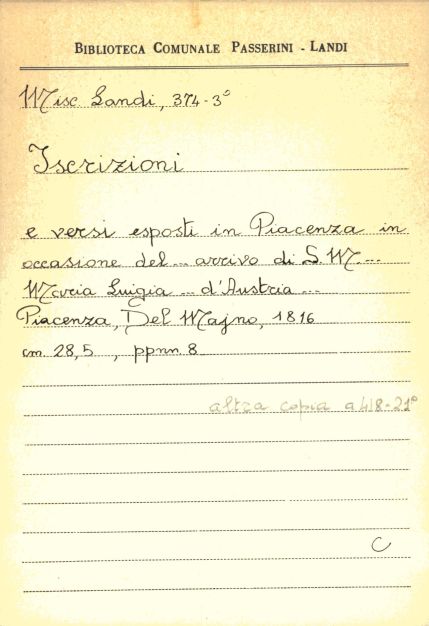 BIBLIOTECA COMUNALE PASSERINI - LANDI
Misc Landi, 374-3°
Iscrizioni
e versi esposti in Piacenza in
occasione del... arrivo di S.M...
Maria Luigia ... d'Austria...
Piacenza, Del Majno, 1816
cm. 28,5 , ppnn. 8
altra copia a 418-21°
C